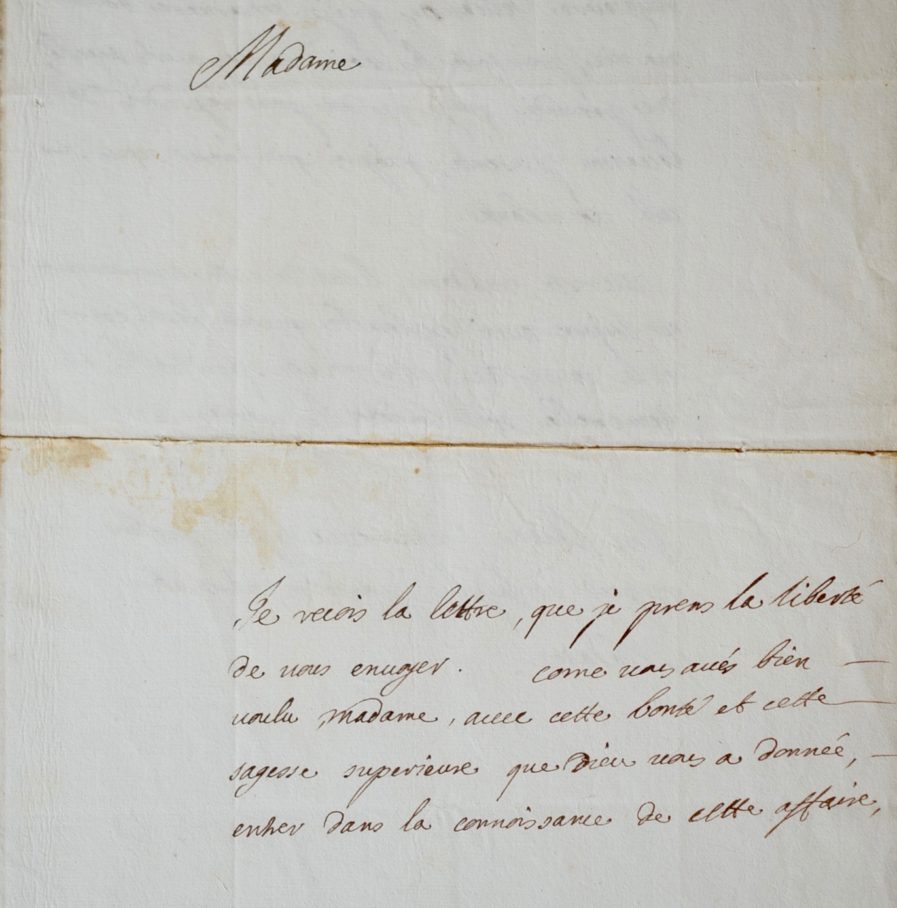 Madame
Je recois la lettre, que je prens la liberté
de vous envoyer. come vous avés bien
voulu madame, avec cette bonté et cette
sagesse superieure que Dieu vous a donnée,
entrer dans la connoissance de cette affaire,